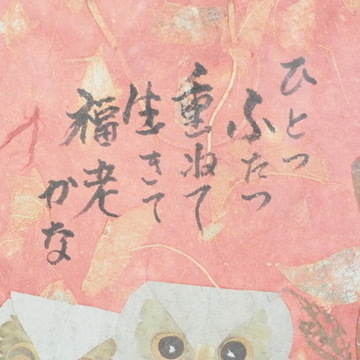 ひとつ
ふたつ
重ねて
生きて
福老
かな